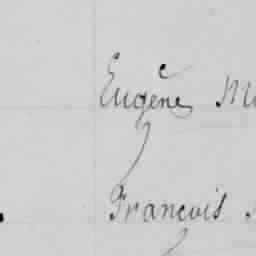 Eugène M
François